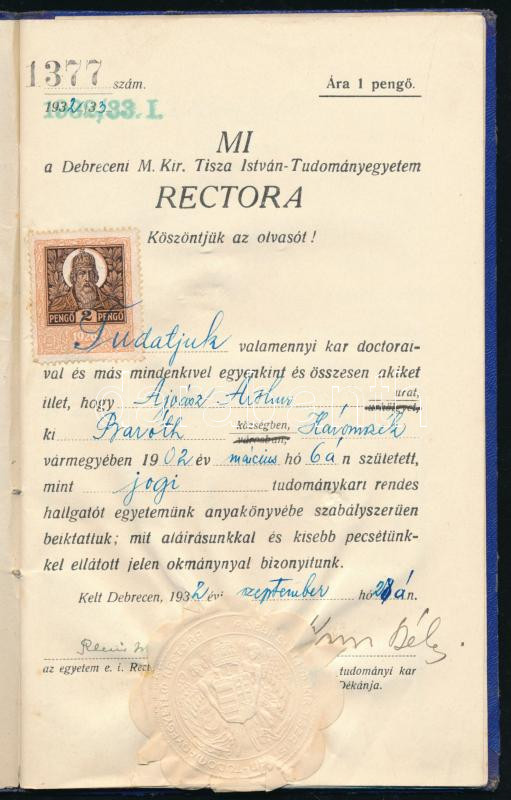 1377 szám.
Ára 1 pengő.
1932/33.
1932/33. I.
MI
a Debreceni M. Kir. Tisza István-Tudományegyetem
RECTORA
Köszöntjük az olvasót!
PENGŐ 2 PENGŐ
Tudatjuk valamennyi kar doctorai-
val és más mindenkivel egyenkint és összesen akiket
illet, hogy Ajváz Arthur urat,
ki Baróth községben, városban, Háromszék
vármegyében 1902 év március hó 6án született,
mint jogi tudománykart rendes
hallgatót egyetemünk anyakönyvébe szabályszerüen
beiktattuk; mit aláirásunkkal és kisebb pecsétünk-
kel ellátott jelen okmánynyal bizonyitunk.
Kelt Debrecen, 1932 évi szeptember hó 28án.
Béla
az egyetem e. i. Rect
tudományi kar
Dékánja.